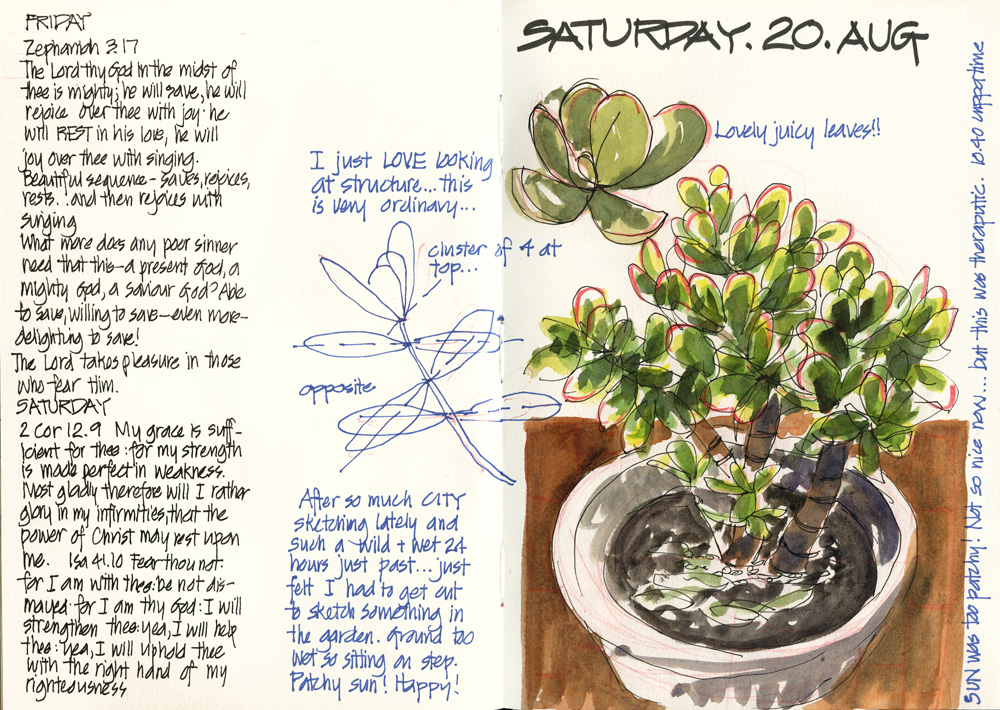 FRIDAY
Zephaniah 3:17
The Lord thy God in the midst of
thee is mighty; he will save, he will
rejoice over thee with joy: he
will REST in his love, he will
joy over thee with singing.
Beautiful sequence - saves, rejoices,
rests..! and then rejoices with
singing
What more does any poor sinner
need that this - a present God, a
mighty God, a saviour God? Able
to save, willing to save - even more -
delighting to save!
The Lord takes pleasure in those
who fear Him.
SATURDAY
2 Cor 12.9 My grace is suff-
icient for thee: for my strength
is made perfect in weakness.
Most gladly therefore will I rather
glory in my infirmities, that the
power of Christ may rest upon
me. Isa 41.10 Fear thou not:
for I am with thee: be not dis-
mayed for I am thy God: I will
strengthen thee: yea, I will help
thee: yea, I will uphold thee
with the right hand of my
righteousness
I just LOVE looking
at structure... this
is very ordinary...
cluster of 4 at
top...
opposite
After so much CITY
sketching lately and
such a wild + wet 24
hours just past... just
felt I had to get out
to sketch something in
the garden. Ground too
wet so sitting on step.
Patchy sun! Happy!
SATURDAY. 20. AUG
Lovely juicy leaves!!
SUN was too patchy! Not so nice now... but this was therapeutic. 10.40 cuppa time